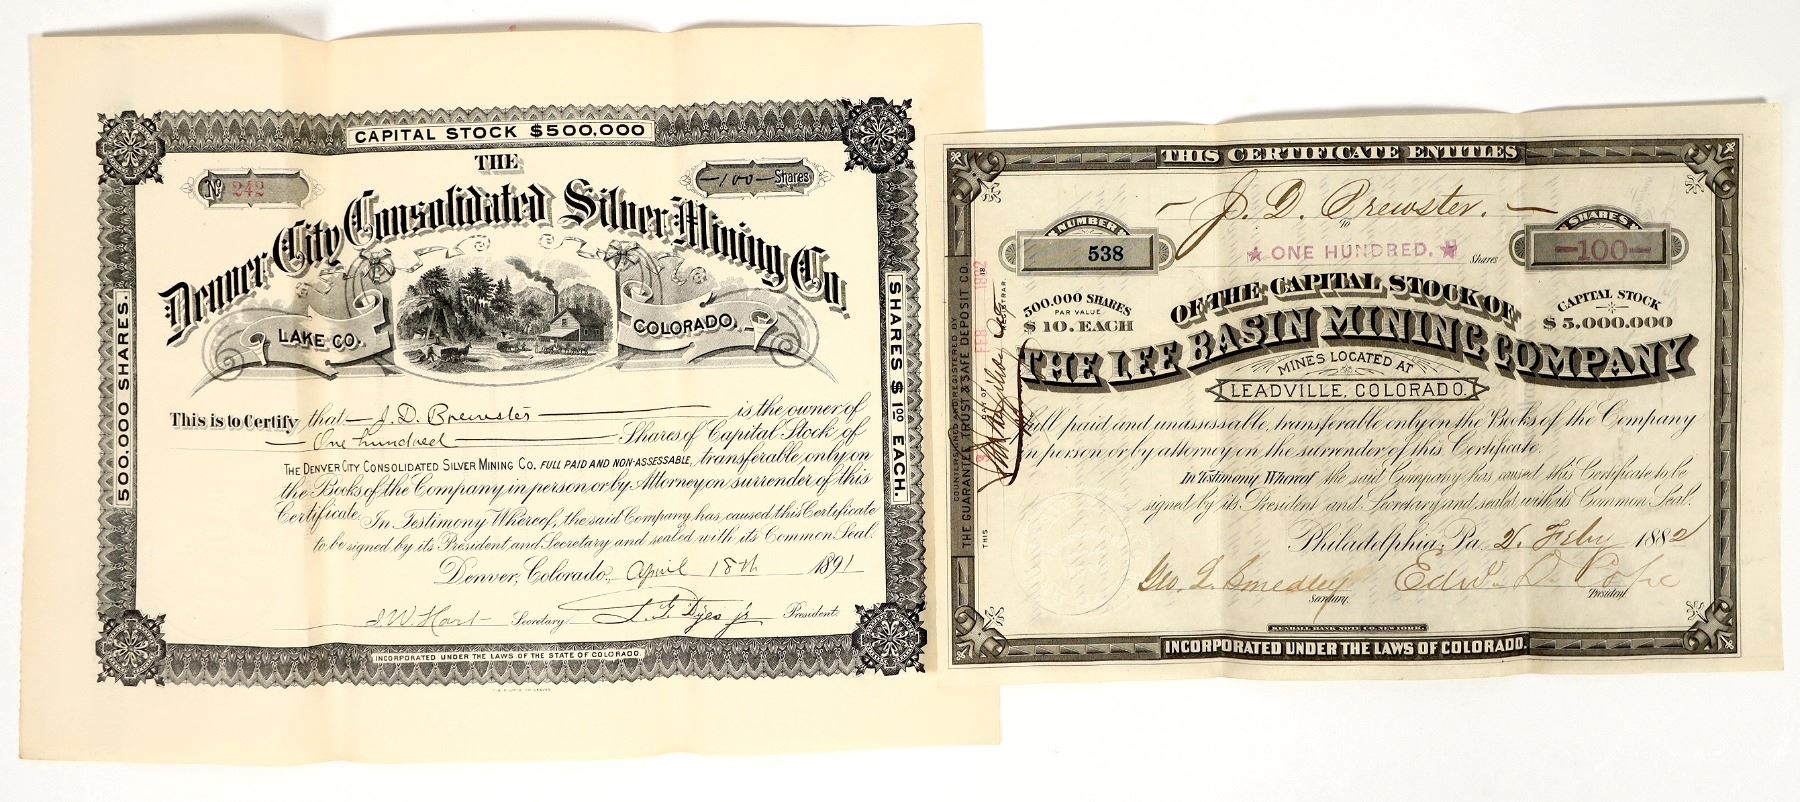 CAPITAL STOCK $500,000
THE
No 242
100 Shares
Denver City Consolidated Silver Mining Co.
LAKE CO.
COLORADO.
500,000 SHARES.
SHARES $1.00 EACH.
This is to Certify that J. D. Brewster is the owner of
One hundred Shares of Capital Stock of
THE DENVER CITY CONSOLIDATED SILVER MINING CO. FULL PAID AND NON-ASSESSABLE, transferable only on
the Books of the Company in person or by Attorney on surrender of this
Certificate. In Testimony Whereof, the said Company has caused this Certificate
to be signed by its President and Secretary and sealed with its Common Seal.
Denver, Colorado, April 18th 1891
J W Hart Secretary. President.
INCORPORATED UNDER THE LAWS OF THE STATE OF COLORADO.
THIS CERTIFICATE ENTITLES
J. D. Brewster.
To
NUMBER
538
★ ONE HUNDRED. ★ Shares
SHARES
—100—
500,000 SHARES
PAR VALUE
$10. EACH
OF THE CAPITAL STOCK OF
CAPITAL STOCK
$5.000.000
THE LEE BASIN MINING COMPANY
MINES LOCATED AT
LEADVILLE, COLORADO.
full paid and unassessable, transferable only on the Books of the Company
in person or by attorney on the surrender of this Certificate.
In Testimony Whereof the said Company has caused this Certificate to be
signed by its President and Secretary and sealed with its Common Seal.
Philadelphia, Pa. 2. Feby 1882
Geo. L. Smedley Edwd D. Pope
Secretary. President.
KENDALL BANK NOTE CO. NEW YORK.
INCORPORATED UNDER THE LAWS OF COLORADO.
COUNTERSIGNED AND REGISTERED BY
THE GUARANTEE TRUST & SAFE DEPOSIT CO.
THIS DAY OF FEB 1882
REGISTRAR.